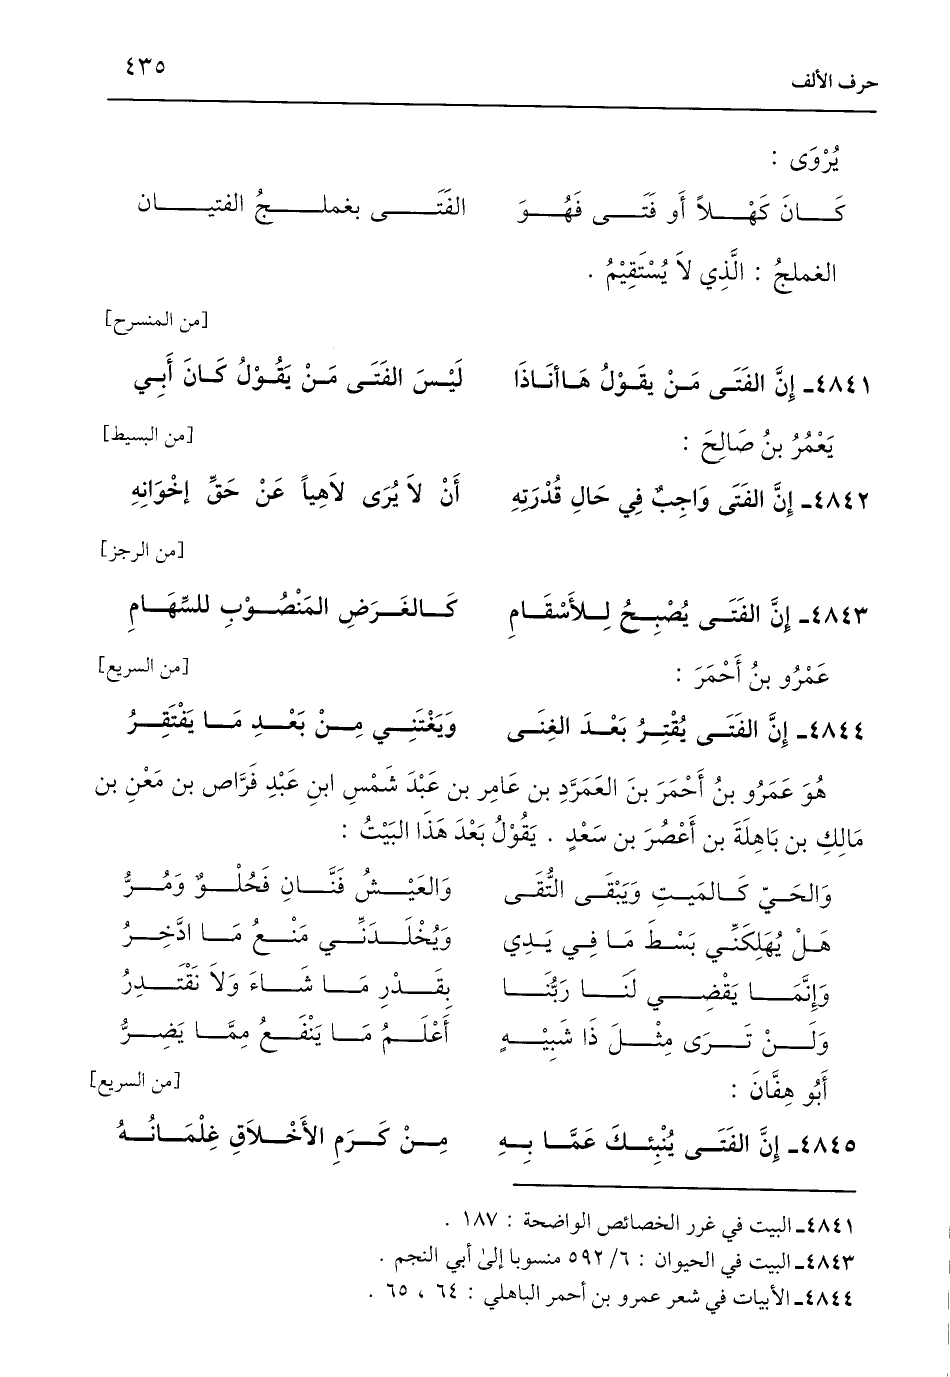 حرف الألف
٤٣٥
يُرْوَى :
كَانَ كَهْلاً أَو فَتَى فَهُوَ الفَتَى بغملجُ الفتيان
الغملجُ : الَّذِي لاَ يُسْتَقِيْمُ .
[من المنسرح]
٤٨٤١ـ إِنَّ الفَتَى مَنْ يقَوْلُ هَاأنَاذَا لَيْسَ الفَتَى مَنْ يَقُوْلُ كَانَ أَبِي
يَعْمُرُ بنُ صَالِحَ :
[من البسيط]
٤٨٤٢ـ إِنَّ الفَتَى وَاجِبٌ فِي حَالِ قُدْرَتِهِ أَنْ لاَ يُرَى لاَهِياً عَنْ حَقِّ إِخْوَانِهِ
[من الرجز]
٤٨٤٣ـ إِنَّ الفَتَى يُصْبِحُ لِلأَسْقَامِ كَالغَرَضِ المَنْصُوْبِ للسِّهَامِ
عَمْرُو بنُ أَحْمَرَ :
[من السريع]
٤٨٤٤ـ إِنَّ الفَتَى يُقْتِرُ بَعْدَ الغِنَى وَيَغْتَنِي مِنْ بَعْدِ مَا يَفْتَقِرُ
هُوَ عَمَرُو بنُ أَحْمَرَ بنَ العَمَرَّدِ بن عَامِر بن عَبْدَ شَمْسِ ابنِ عَبْدِ فَرَّاص بن مَعْنِ بن
مَالِكِ بن بَاهِلَةَ بن أَعْصُرَ بن سَعْدٍ . يَقُوْلُ بَعْدَ هَذَا البَيْتُ :
وَالحَيّ كَالمَيتِ وَيَبْقَى التُّقَى وَالعَيْشُ فَنَّانِ فَحُلْوٌ وَمُرُّ
هَلْ يُهَلِكَنِّي بَسْطَ مَا فِي يَدِي وَيُخْلَدَنِّي مَنْعُ مَا ادَّخِرُ
وَإِنَّمَا يَقْضِي لَنَا رَبُّنَا بِقَدْرِ مَا شَاءَ وَلاَ نَقْتَدِرُ
وَلَنْ تَرَى مِثْلَ ذَا شَبِيْهٍ أَعْلَمُ مَا يَنْفَعُ مِمَّا يَضِرُّ
أَبُو هِفَّانَ :
[من السريع]
٤٨٤٥ـ إِنَّ الفَتَى يُنْبِئكَ عَمَّا بِهِ مِنْ كَرَمِ الأَخْلاَقِ غِلْمَانُهُ
٤٨٤١ـ البيت في غرر الخصائص الواضحة : ١٨٧ .
٤٨٤٣ـ البيت في الحيوان : ٦/ ٥٩٢ منسوبا إلى أبي النجم .
٤٨٤٤ـ الأبيات في شعر عمرو بن أحمر الباهلي : ٦٤ ، ٦٥ .